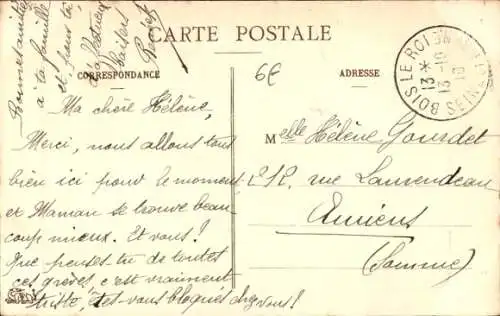 CARTE POSTALE
CORRESPONDANCE
ADRESSE
6€
BOIS LE ROI
13 * 13-10 10
Bonne santé
à ta famille
et pour toi
affectueux
baisers
Ma chère Hélène,
Merci, nous allons tous
bien ici pour le moment
et Maman se trouve beau-
coup mieux. Et vous?
Que penses-tu de toutes
ces grèves c'est vraiment
triste, êtes-vous bloqués chez vous!
Melle Hélène Gourdet
rue Laurendeau
Amiens
(Somme)